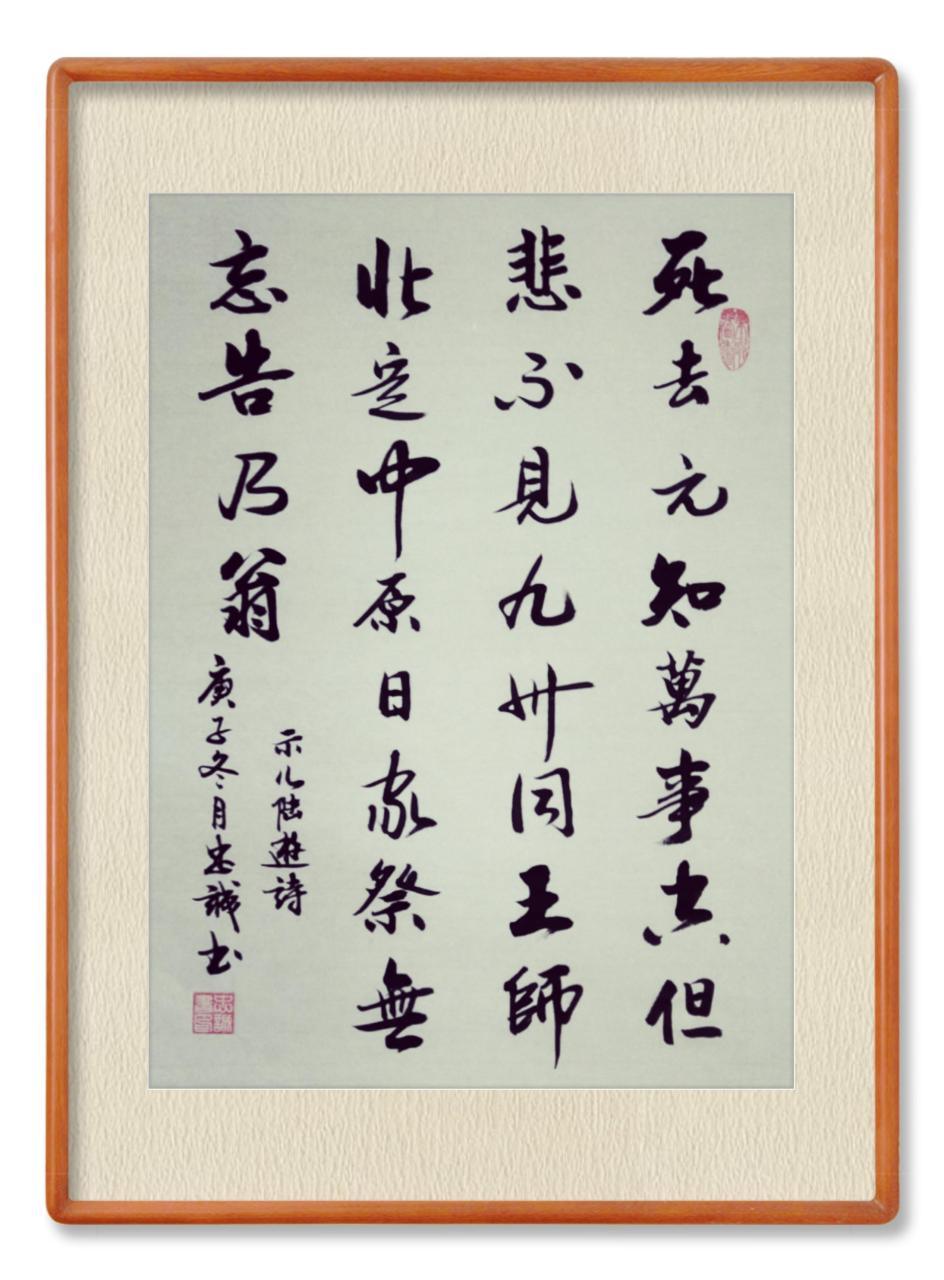 死去元知萬事空但
悲不見九州同王師
北定中原日家祭無
忘告乃翁
示儿陆遊詩
庚子冬月忠誠书
忠誠書印